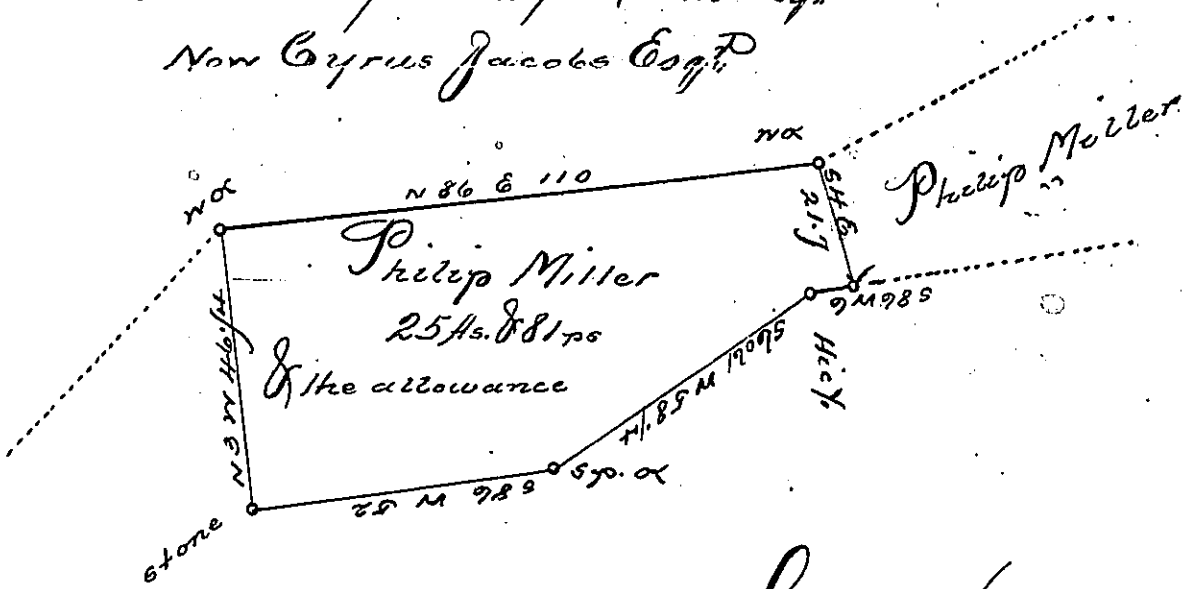 Now Cyrus Jacobs Esqr
wo
N 86 E 110
wo
S 4 E
21.J
Philip Miller
Philip Miller
25 As. & 81 ps
& the allowance
S 86 W 6
Hicy.
W 58
sp. o
S 86 W 52
N 3 W
stone